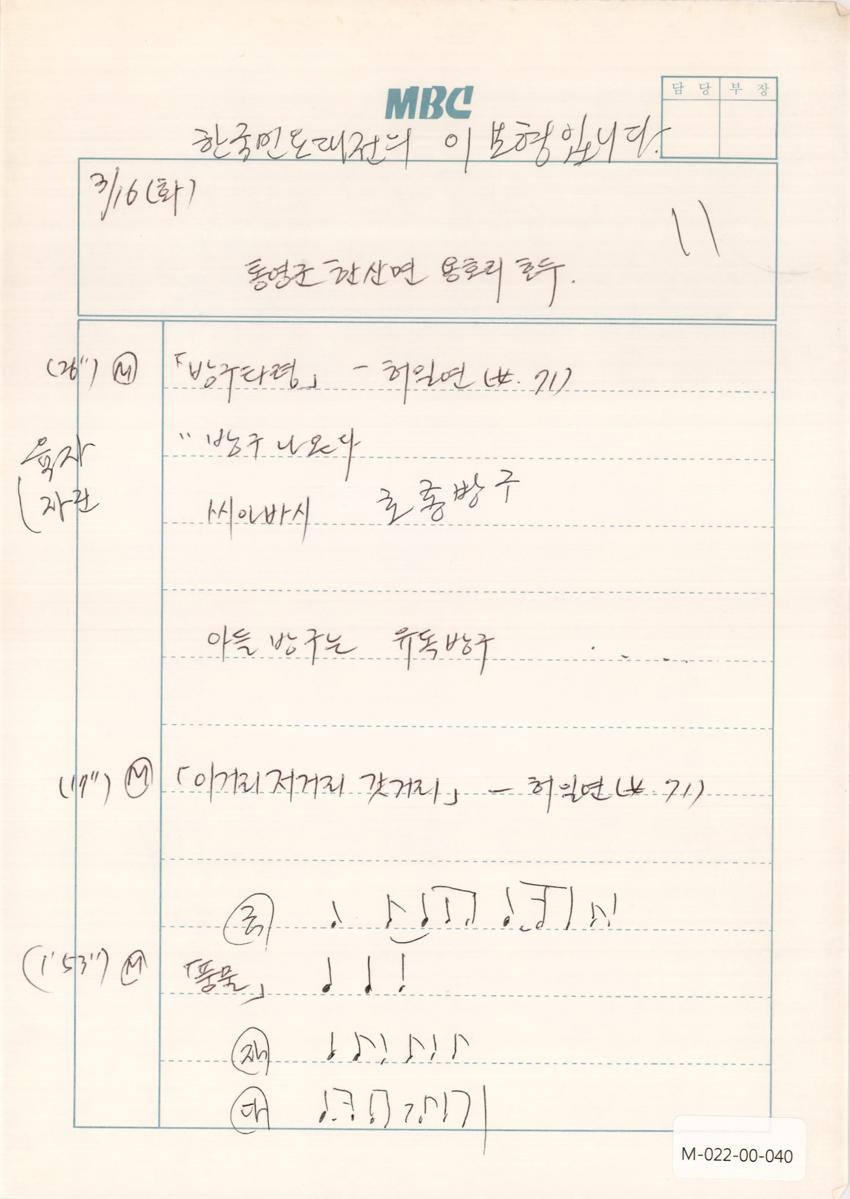 담 당 부 장
MBC
한국민요대전의 이보형입니다.
3/16 (화)
11
통영군 한산면 용호리 호두.
(26") Ⓜ 「방구타령」 - 허일연 (女. 71)
육자
자란
" 방구 나온다
씨아바시 호통방구
아들 방구는 유독방구 . . . . .
(17") Ⓜ 「이거리저거리 갓거리」 - 허일연 (女 71)
(1'53") Ⓜ 「풍물」
M-022-00-040